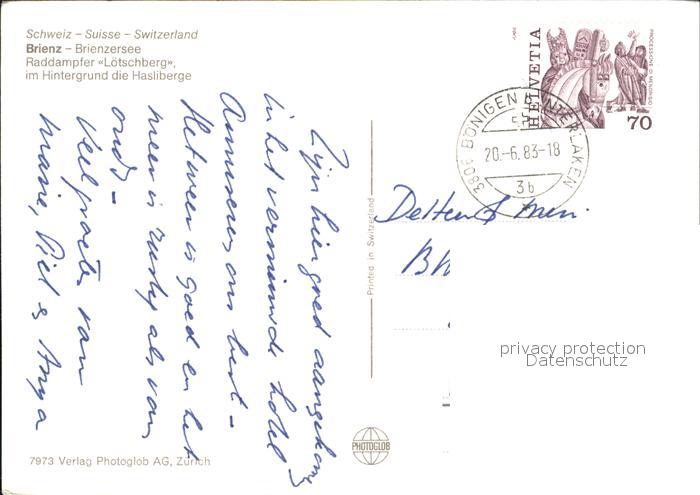 Schweiz – Suisse – Switzerland
Brienz – Brienzersee
Raddampfer «Lötschberg»,
im Hintergrund die Hasliberge
Zijn hier goed aangekomen
in het vernieuwde hotel
Amuseren ons best –
Het weer is goed en het
meer is rustig als van
ouds –
Veel groeten van
Marie, Piet & Anya
7973 Verlag Photoglob AG, Zürich
PHOTOGLOB
Printed in Switzerland
HELVETIA
PROCESSIONE DI MENDRISIO
70
3806 BÖNIGEN B. INTERLAKEN
20.-6.83-18
3b
privacy protection
Datenschutz